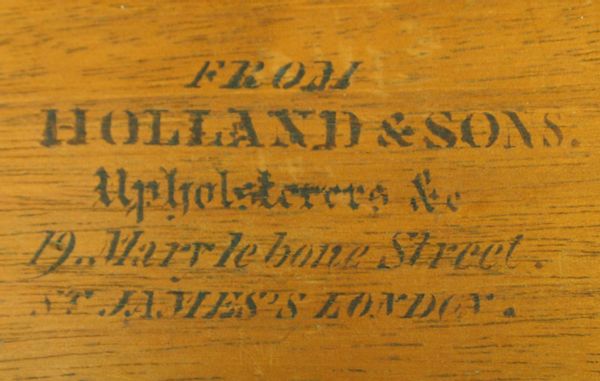 FROM
HOLLAND & SONS.
Upholsterers &c
19, Marylebone Street.
ST JAMES'S LONDON.